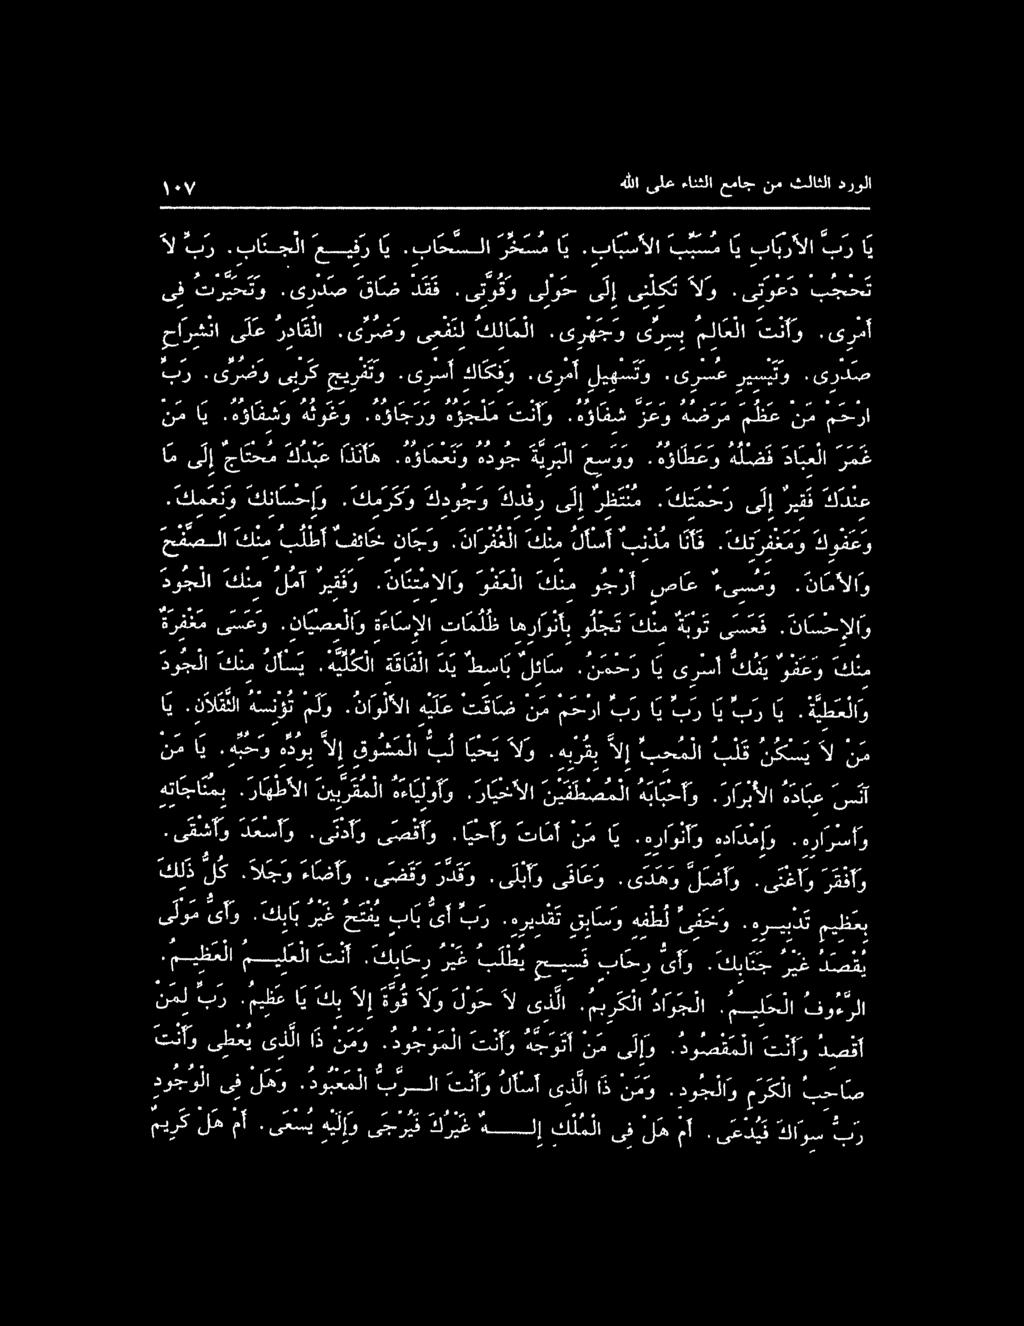 الورد الثالث من جامع الثناء على الله ١٠٧
يَا رَبَّ الأَرْبَابِ يَا مُسَبِّبَ الأَسْبَابِ. يَا مُسَخِّرَ السَّحَابِ. يَا رَفِيعَ الْجِنَابِ. رَبِّ لاَ
تَحْجُبْ دَعْوَتِى. وَلاَ تَكِلْنِى إِلَى حَوْلِى وَقُوَّتِى. فَقَدْ ضَاقَ صَدْرِى. وَتَحَيَّرْتُ فِى
أَمْرِى. وَأَنْتَ الْعَالِمُ بِسِرِّى وَجَهْرِى. الْمَالِكُ لِنَفْعِى وَضُرِّى. الْقَادِرُ عَلَى انْشِرَاحِ
صَدْرِى. وَتَيْسِيرِ عُسْرِى. وَتَسْهِيلِ أَمْرِى. وَفِكَاكِ أَسْرِى. وَتَفْرِيجِ كَرْبِى وَضُرِّى. رَبِّ
ارْحَمْ مَنْ عَظُمَ مَرَضُهُ وَعَزَّ شِفَاؤُهُ. وَأَنْتَ مَلْجَؤُهُ وَرَجَاؤُهُ. وَغَوْثُهُ وَشِفَاؤُهُ. يَا مَنْ
غَمَرَ الْعِبَادَ فَضْلُهُ وَعَطَاؤُهُ. وَوَسِعَ الْبَرِيَّةَ جُودُهُ وَنَعْمَاؤُهُ. هَأَنَذَا عَبْدُكَ مُحْتَاجٌ إِلَى مَا
عِنْدَكَ فَقِيرٌ إِلَى رَحْمَتِكَ. مُنْتَظِرٌ إِلَى رِفْدِكَ وَجُودِكَ وَكَرَمِكَ. وَإِحْسَانِكَ وَنِعَمِكَ.
وَعَفْوِكَ وَمَغْفِرَتِكَ. فَأَنَا مُذْنِبٌ أَسأَلُ مِنْكَ الْغُفْرَانَ. وَجَانٍ خَائِفٌ أَطْلُبُ مِنْكَ الصَّفْحَ
وَالأَمَانَ. وَمُسِىءٌ عَاصٍ أَرْجُو مِنْكَ الْعَفْوَ وَالاِمْتِنَانَ. وَفَقِيرٌ آمُلُ مِنْكَ الْجُودَ
وَالإِحْسَانَ. فَعَسَى تَوْبَةٌ مِنْكَ تَجْلُو بِأَنْوَارِهَا ظُلُمَاتِ الإِسَاءَةِ وَالْعِصْيَانِ. وَعَسَى مَغْفِرَةٌ
مِنْكَ وَعَفْوٌ يَفُكُّ أَسْرِى يَا رَحْمَنُ. سَائِلٌ بَاسِطٌ يَدَ الْفَاقَةِ الْكُلِّيَّة. يَسْأَلُ مِنْكَ الْجُودَ
وَالْعَطِيَّةَ. يَا رَبِّ يَا رَبِّ يَا رَبِّ ارْحَمْ مَنْ ضَاقَتْ عَلَيْهِ الأَلْوَانُ. وَلَمْ تُؤْنِسْهُ الثَّقَلاَنِ. يَا
مَنْ لاَ يَسْكُنُ قَلْبُ الْمُحِبِّ إِلاَّ بِقُرْبِهِ. وَلاَ يَحْيَا لُبُّ الْمَشُوقِ إِلاَّ بِوُدِّهِ وَحُبِّهِ. يَا مَنْ
آنَسَ عِبَادَهُ الأَبْرَارَ. وَأَحْبَابَهُ الْمُصْطَفَيْنَ الأَخْيَارَ. وَأَوْلِيَاءَهُ الْمُقَرَّبِينَ الأَطْهَارَ. بِمُنَاجَاتِهِ
وَأَسْرَارِهِ. وَإِمْدَادِهِ وَأَنْوَارِهِ. يَا مَنْ أَمَاتَ وَأَحْيَا. وَأَقْصَى وَأَدْنَى. وَأَسْعَدَ وَأَشْقَى.
وَأَفْقَرَ وَأَغْنَى. وَأَضَلَّ وَهَدَى. وَعَافَى وَأَبْلَى. وَقَدَّرَ وَقَضَى. وَأَضَاءَ وَجَلاَ. كُلُّ ذَلِكَ
بِعَظِيمِ تَدْبِيرِهِ. وَخَفِىِّ لُطْفِهِ وَسَابِقِ تَقْدِيرِهِ. رَبِّ أَىُّ بَابٍ يُفْتَحُ غَيْرُ بَابِكَ. وَأَىُّ مَوْلَى
يُقْصَدُ غَيْرُ جَنَابِكَ. وَأَىُّ رِحَابٍ فَسِيحٍ يُطْلَبُ غَيْرُ رِحَابِكَ. أَنْتَ الْعَلِيمُ الْعَظِيمُ.
الرَّءُوفُ الْحَلِيمُ. الْجَوَادُ الْكَرِيمُ. الَّذِى لاَ حَوْلَ وَلاَ قُوَّةَ إِلاَّ بِكَ يَا عَظِيمُ. رَبِّ لِمَنْ
أَقْصِدُ وَأَنْتَ الْمَقْصُودُ. وَإِلَى مَنْ أَتَوَجَّهُ وَأَنْتَ الْمَوْجُودُ. وَمَنْ ذَا الَّذِى يُعْطِى وَأَنْتَ
صَاحِبُ الْكَرَمِ وَالْجُودِ. وَمَنْ ذَا الَّذِى أَسْأَلُ وَأَنْتَ الرَّبُّ الْمَعْبُودُ. وَهَلْ فِى الْوُجُودِ
رَبٌّ سِوَاكَ فَيُدْعَى. أَمْ هَلْ فِى الْمُلْكِ إِلهٌ غَيْرُكَ فَيُرْجَى وَإِلَيْهِ يُسْعَى. أَمْ هَلْ كَرِيمٌ